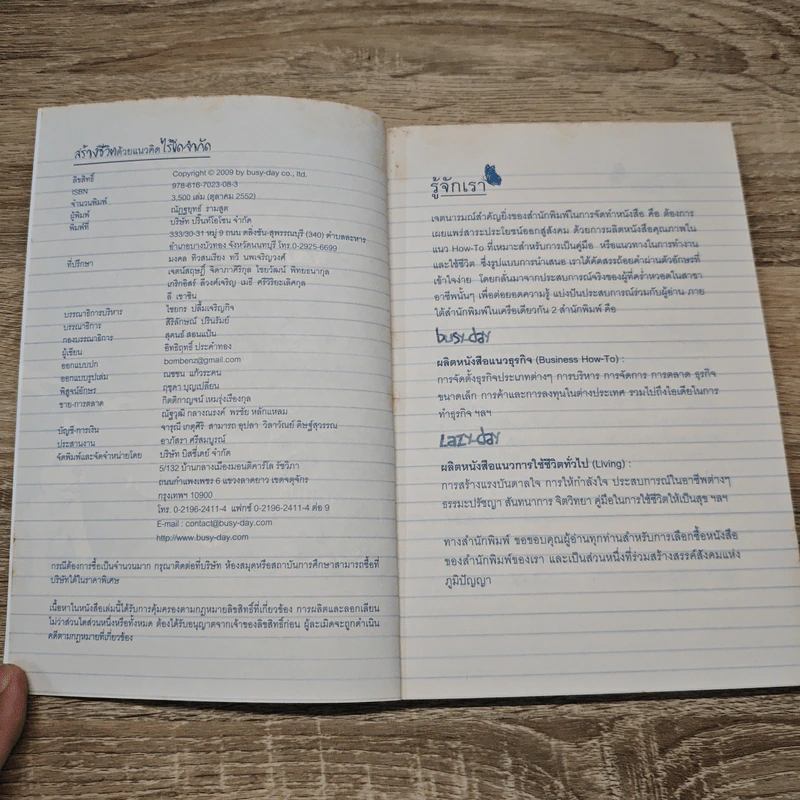 สร้างชีวิตด้วยแนวคิดไร้ขีดจำกัด
ลิขสิทธิ์ Copyright © 2009 by busy-day co., ltd.
ISBN 978-616-7023-08-3
จำนวนพิมพ์ 3,500 เล่ม (ตุลาคม 2552)
ผู้พิมพ์ ณัฏฐยุทธ์ รามสูต
พิมพ์ที่ บริษัท ปริ้นท์โอโซน จำกัด
333/30-31 หมู่ 9 ถนน ตลิ่งชัน-สุพรรณบุรี (340) ตำบลละหาร
อำเภอบางบัวทอง จังหวัดนนทบุรี โทร.0-2925-6699
ที่ปรึกษา มงคล ทิวสนเรียง ทวี นพเจริญวงศ์
เจตน์สฤษฎิ์ จิดาภาศิริกุล ไชยวัฒน์ พิทยธนากุล
เกริกอิสต์ ลีวงศ์เจริญ เมธี ศรีวิริยะเลิศกุล
ลี เขาชิน
บรรณาธิการบริหาร ไชยกร ปลื้มเจริญกิจ
บรรณาธิการ สิริลักษณ์ ปรินรัมย์
กองบรรณาธิการ สุคนธ์ สอนแป้น
ผู้เขียน อิทธิฤทธิ์ ประคำทอง
ออกแบบปก bombenz@gmail.com
ออกแบบรูปเล่ม ณชชน แก้วระคน
พิสูจน์อักษร ฤชุดา บุญเปลี่ยน
ขาย-การตลาด กิตติกาญจน์ เหมรุ่งเรืองกุล
ณัฐวุฒิ กลางณรงค์ พรชัย หลักแหลม
บัญชี-การเงิน จารุณี เกตุศิริ สามารถ อุปลา วิลาวัณย์ ดิษฐ์สุวรรณ
ประสานงาน อาภัสรา ศรีสมบูรณ์
จัดพิมพ์และจัดจำหน่ายโดย บริษัท บิสซี่เดย์ จำกัด
5/132 บ้านกลางเมืองมอนติคาร์โล รัชวิภา
ถนนกำแพงเพชร 6 แขวงลาดยาว เขตจตุจักร
กรุงเทพฯ 10900
โทร. 0-2196-2411-4 แฟกซ์ 0-2196-2411-4 ต่อ 9
E-mail : contact@busy-day.com
http://www.busy-day.com
กรณีต้องการซื้อเป็นจำนวนมาก กรุณาติดต่อที่บริษัท ห้องสมุดหรือสถาบันการศึกษาสามารถซื้อที่
บริษัทได้ในราคาพิเศษ
เนื้อหาในหนังสือเล่มนี้ได้รับการคุ้มครองตามกฎหมายลิขสิทธิ์ที่เกี่ยวข้อง การผลิตและลอกเลียน
ไม่ว่าส่วนใดส่วนหนึ่งหรือทั้งหมด ต้องได้รับอนุญาตจากเจ้าของลิขสิทธิ์ก่อน ผู้ละเมิดจะถูกดำเนิน
คดีตามกฎหมายที่เกี่ยวข้อง
รู้จักเรา
เจตนารมณ์สำคัญยิ่งของสำนักพิมพ์ในการจัดทำหนังสือ คือ ต้องการ
เผยแพร่สาระประโยชน์ออกสู่สังคม ด้วยการผลิตหนังสือคุณภาพใน
แนว How-To ที่เหมาะสำหรับการเป็นคู่มือ หรือแนวทางในการทำงาน
และใช้ชีวิต ซึ่งรูปแบบการนำเสนอ เราได้คัดสรรถ้อยคำผ่านตัวอักษรที่
เข้าใจง่าย โดยกลั่นมาจากประสบการณ์จริงของผู้ที่คร่ำหวอดในสาขา
อาชีพนั้นๆ เพื่อต่อยอดความรู้ แบ่งปันประสบการณ์ร่วมกับผู้อ่าน ภาย
ใต้สำนักพิมพ์ในเครือเดียวกัน 2 สำนักพิมพ์ คือ
busy-day
ผลิตหนังสือแนวธุรกิจ (Business How-To) :
การจัดตั้งธุรกิจประเภทต่างๆ การบริหาร การจัดการ การตลาด ธุรกิจ
ขนาดเล็ก การค้าและการลงทุนในต่างประเทศ รวมไปถึงไอเดียในการ
ทำธุรกิจ ฯลฯ
Lazy-day
ผลิตหนังสือแนวการใช้ชีวิตทั่วไป (Living) :
การสร้างแรงบันดาลใจ การให้กำลังใจ ประสบการณ์ในอาชีพต่างๆ
ธรรมะปรัชญา สันทนาการ จิตวิทยา คู่มือในการใช้ชีวิตให้เป็นสุข ฯลฯ
ทางสำนักพิมพ์ ขอขอบคุณผู้อ่านทุกท่านสำหรับการเลือกซื้อหนังสือ
ของสำนักพิมพ์ของเรา และเป็นส่วนหนึ่งที่ร่วมสร้างสรรค์สังคมแห่ง
ภูมิปัญญา